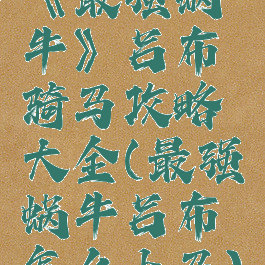 《最强蜗
牛》吕布
骑马攻略
大全(最强
蜗牛吕布